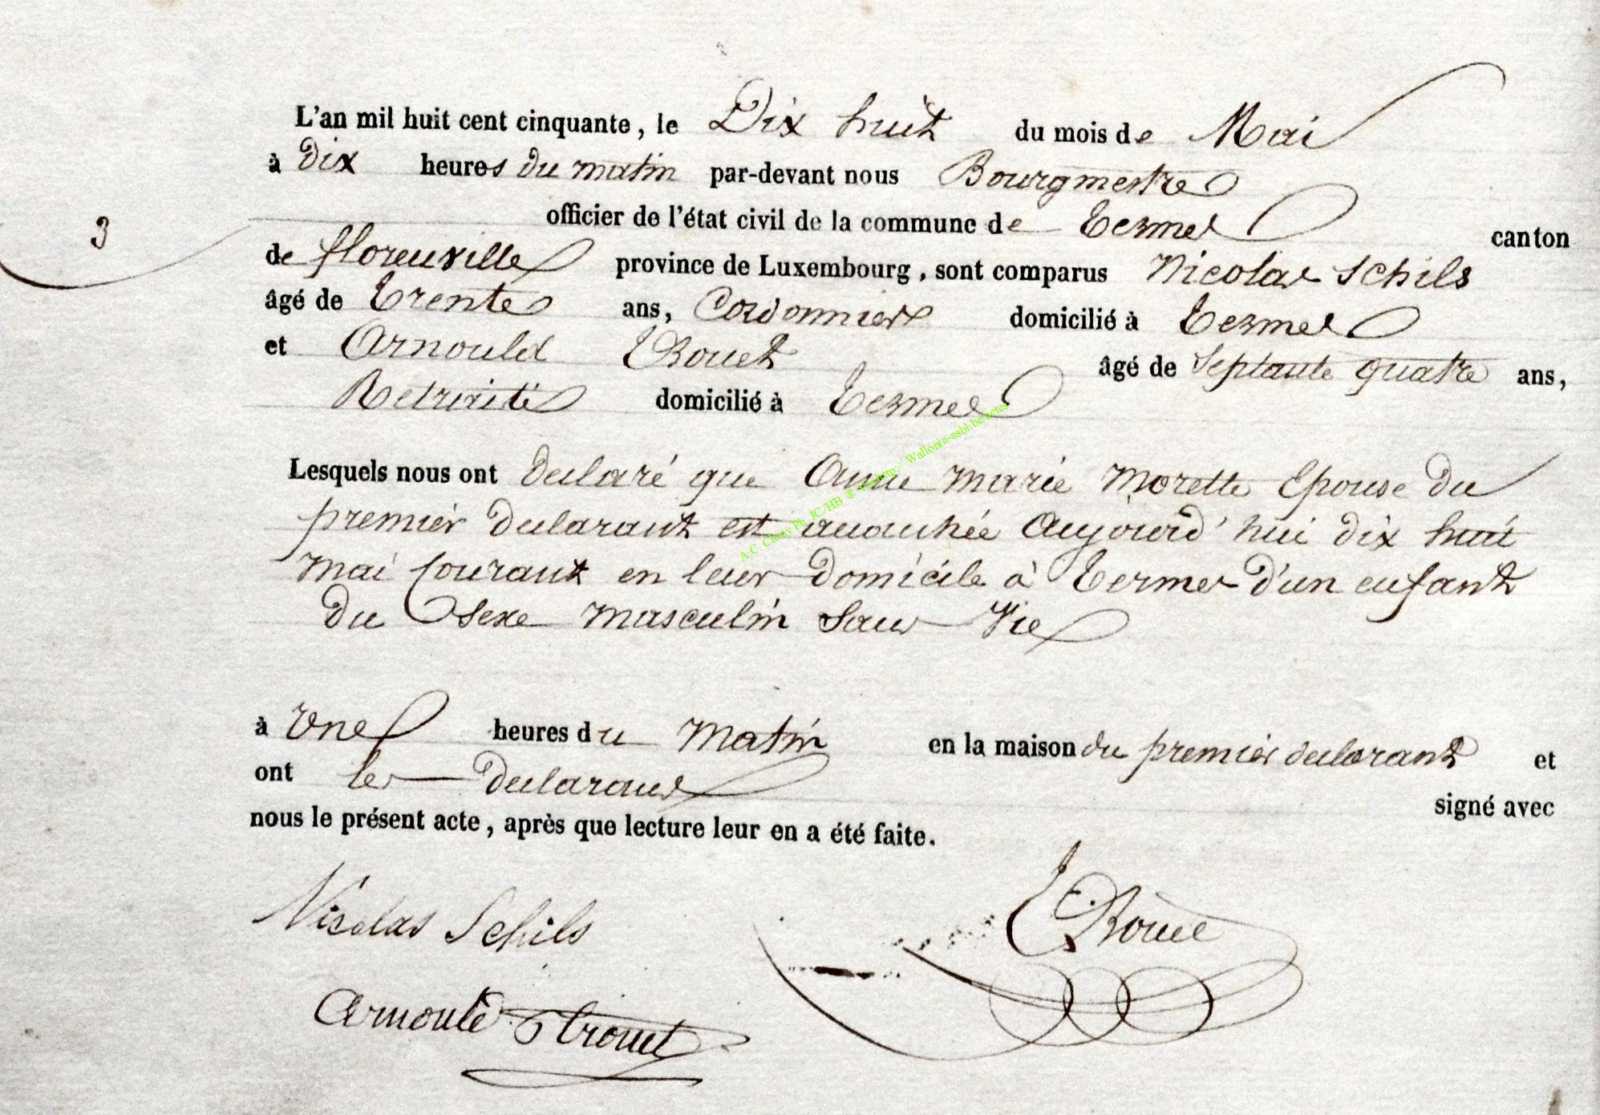 L'an mil huit cent cinquante, le Dix huit du mois de Mai
à dix heures du matin par-devant nous Bourgmestre
officier de l'état civil de la commune de Termes canton
3
de florenville province de Luxembourg, sont comparus Nicolas Schils
âgé de trente ans, Cordonnier domicilié à Termes
et Arnould Trouet âgé de Septante quatre ans,
Retraité domicilié à Termes
Lesquels nous ont declaré que Anne Marie Morette Epouse du
premier declarant est accouchée Aujourd'hui dix huit
Mai Courant en leur Domicile à Termes d'un enfant
du sexe masculin sans Vie
à Une heures du Matin en la maison du premier declarant et
ont les declarans signé avec
nous le présent acte, après que lecture leur en a été faite.
Nicolas Schils
Arnould Trouet